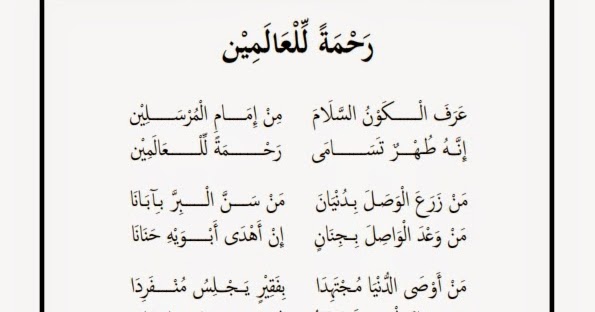 رَحْمَةً لِّلْعَالَمِيْن
عَرَفَ الْكَوْنُ السَّلَامَ مِنْ إِمَامِ الْمُرْسَلِيْن
إِنَّهُ طُهْرٌ تَسَامَى رَحْمَةً لِّلْعَالَمِيْن
مَنْ زَرَعَ الْوَصَلَ بِدُنْيَانَ مَنْ سَنَّ الْبِرَّ بِآبَانَا
مَنْ وَعْدَ الْوَاصِلَ بِجِنَانٍ إِنْ أَهْدَى أَبَوَيْهِ حَنَانَا
مَنْ أَوْصَى الدُّنْيَا مُجْتَهِدَا بِفَقِيْرٍ يَجْلِسُ مُنْفَرِدَا